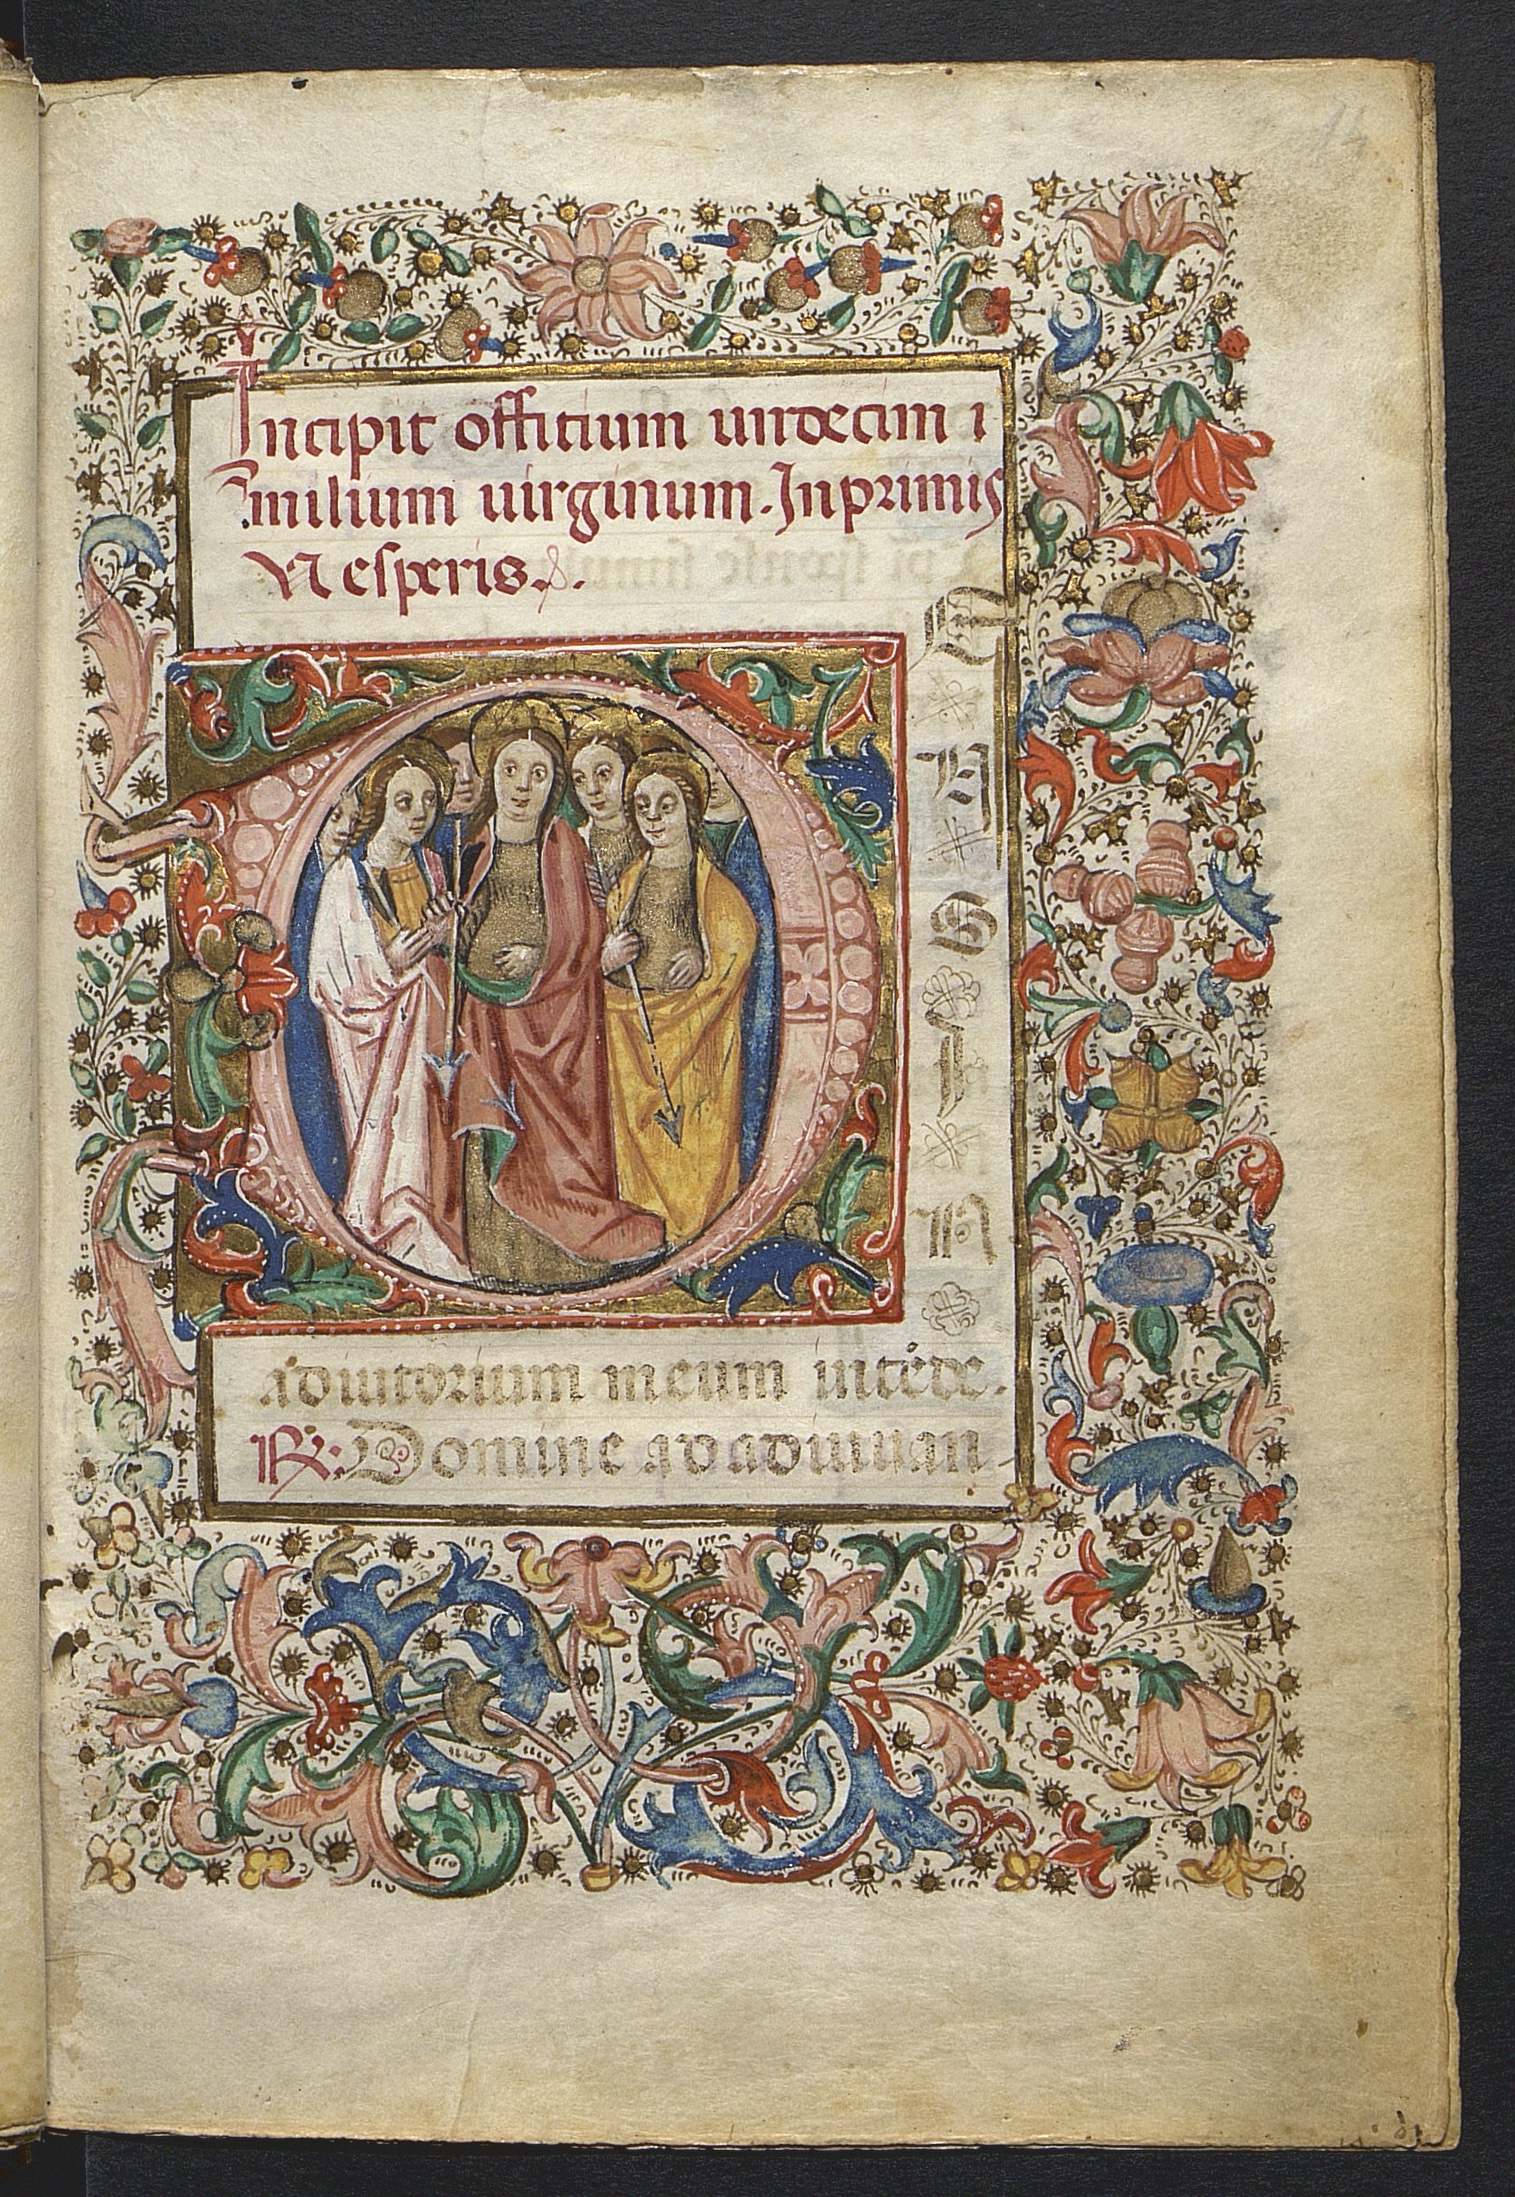 Incipit offitium undecim i
milium uirginum. Inprimis
Vesperis.
D
E
V
S
I
N
adiutorium meum intēde.
℟: Domine ad adiuuan